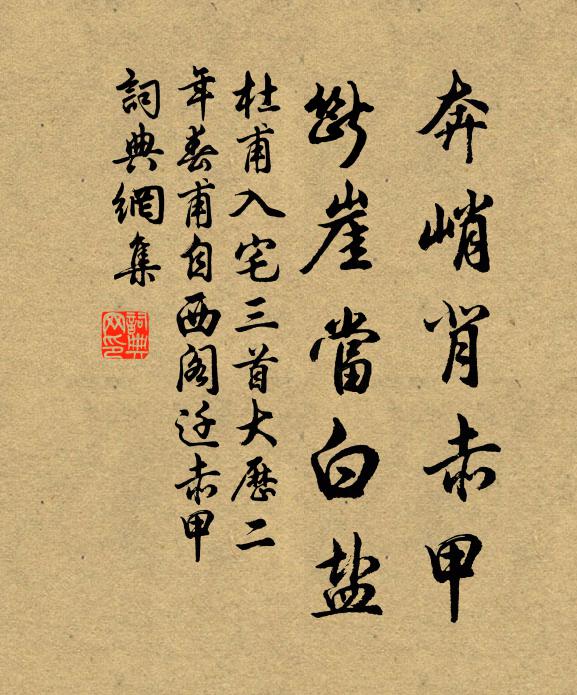 奔峭背赤甲
断崖當白盐
杜甫入宅三首大歷二
年春甫自西閣迁赤甲
詞典網集
詞典网印